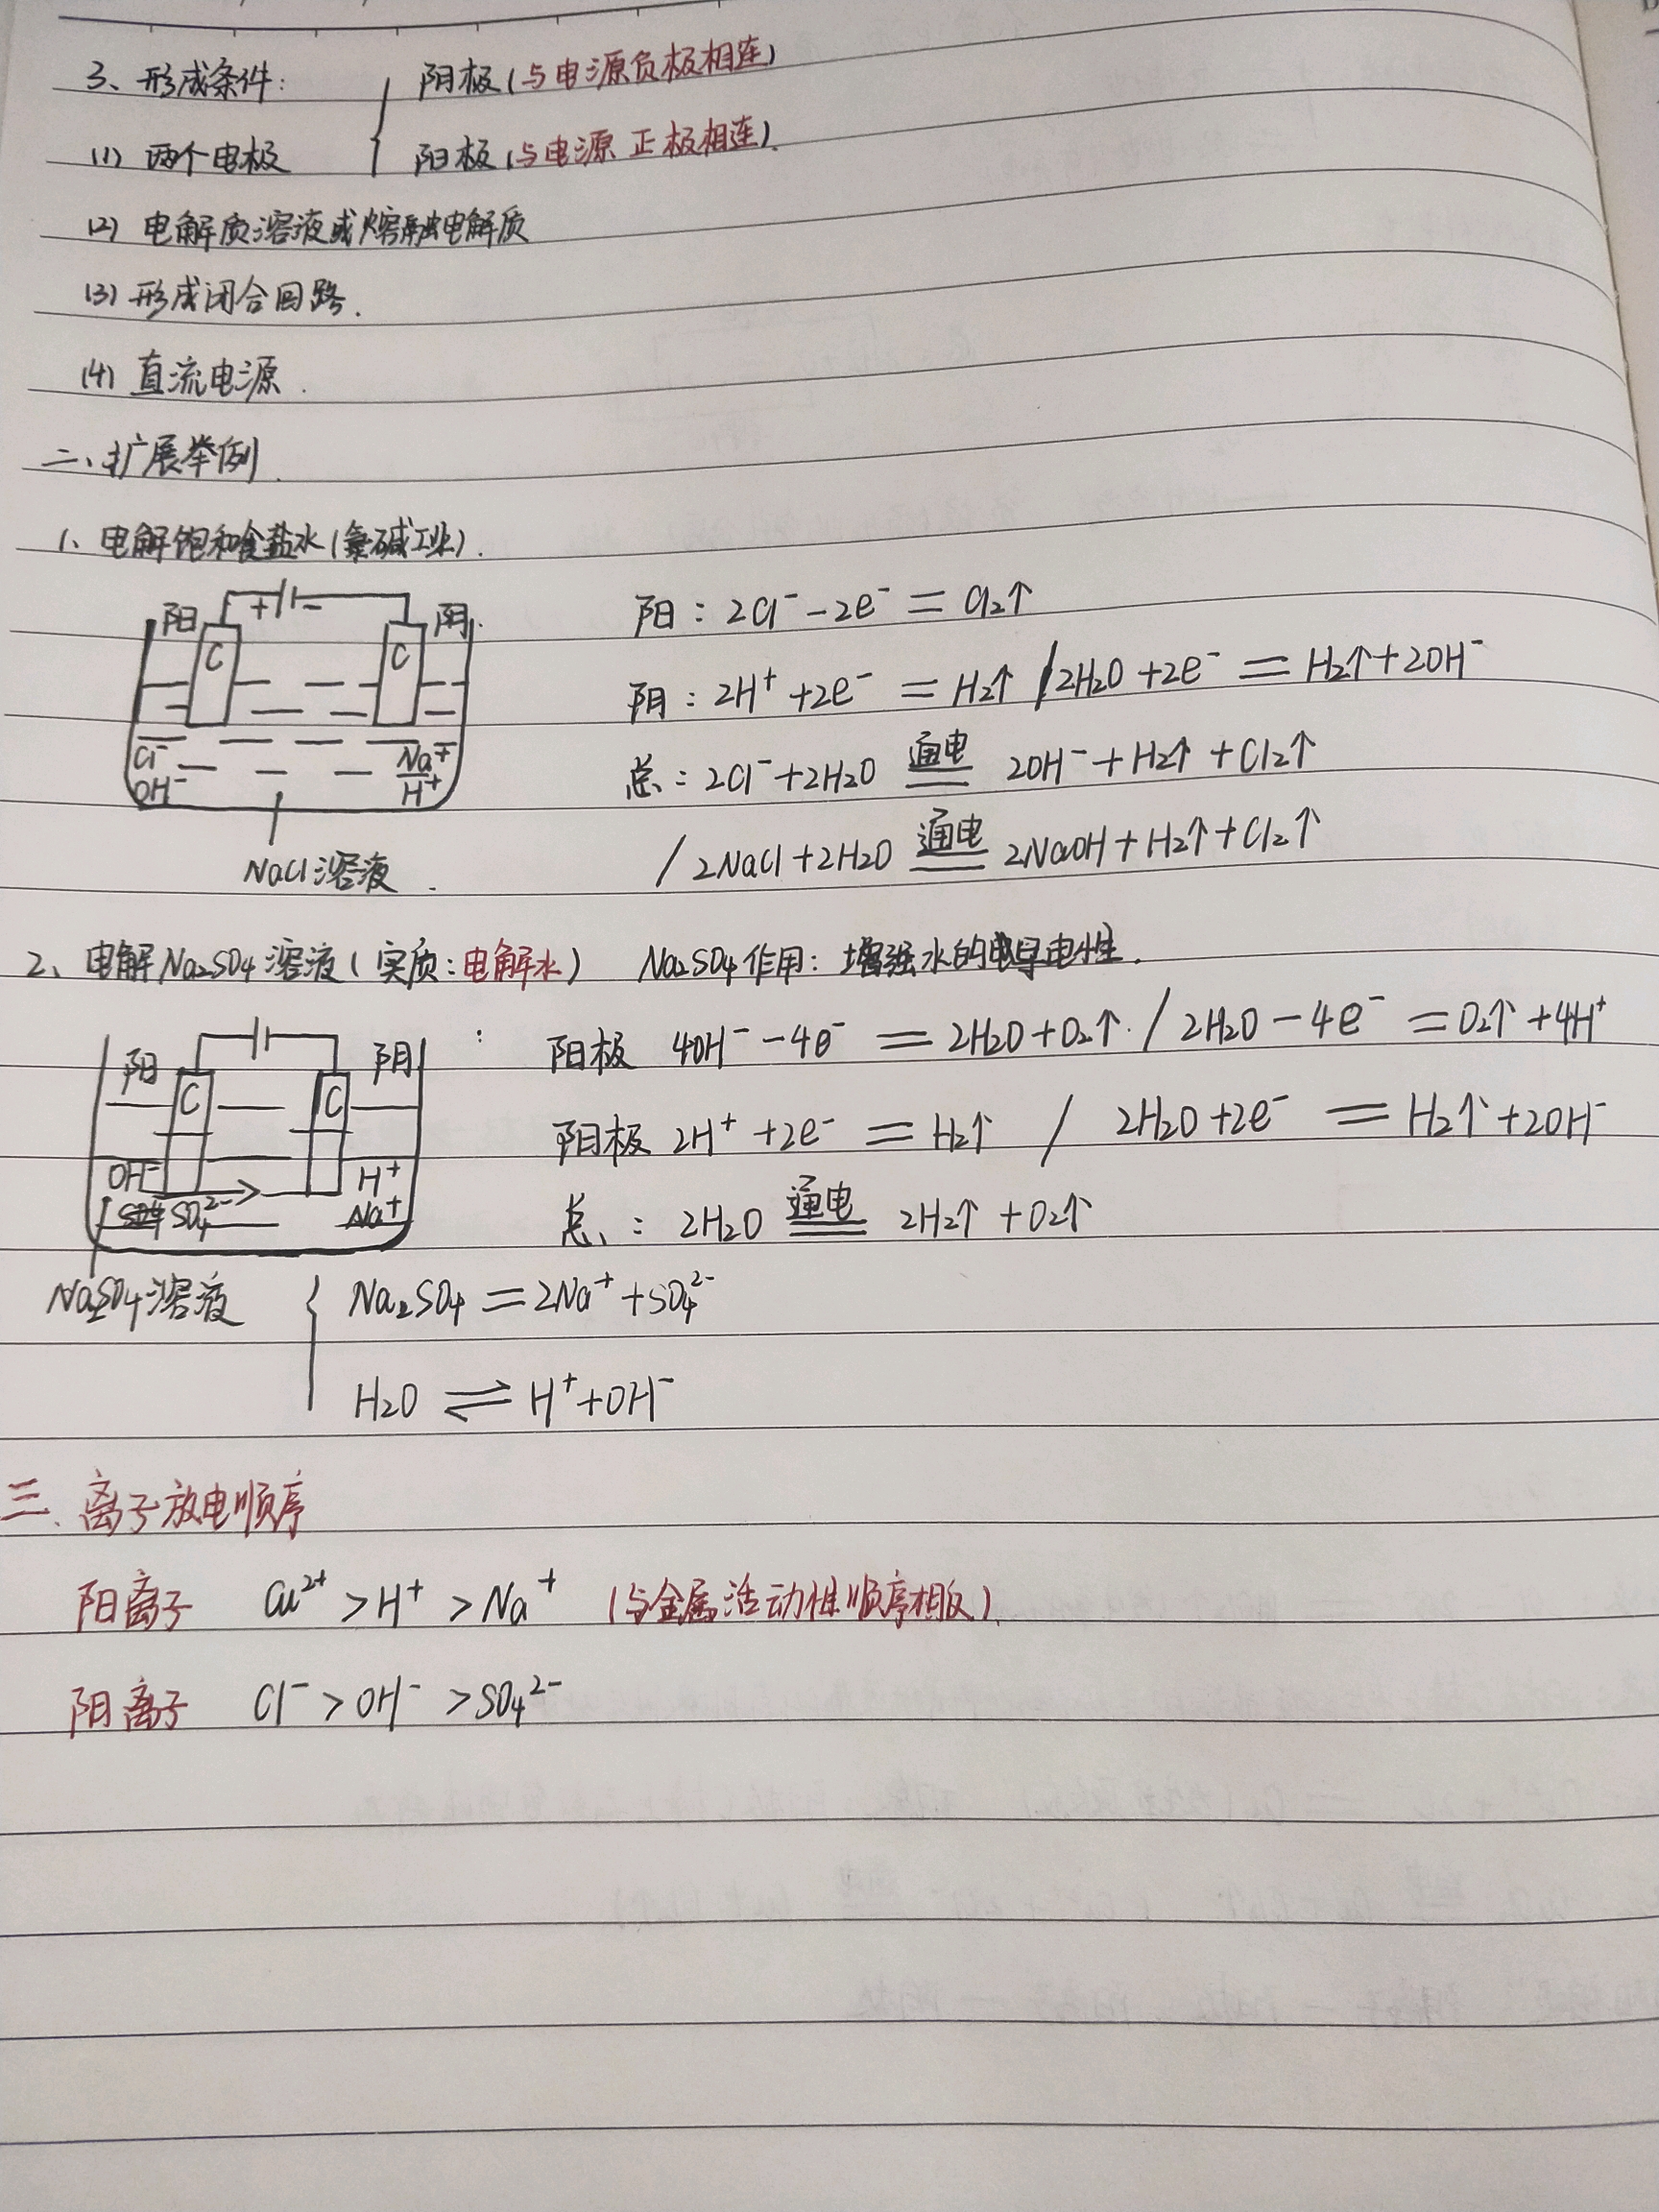 3、形成条件: 阴极(与电源负极相连)
(1) 两个电极 阳极(与电源 正极相连).
(2) 电解质溶液或熔融电解质
(3) 形成闭合回路.
(4) 直流电源.
二、扩展举例.
1、电解饱和食盐水(氯碱工业).
阳 + - 阴.
C C
Cl⁻ Na⁺
OH⁻ H⁺
NaCl溶液.
阳: 2Cl⁻-2e⁻=Cl₂↑
阴: 2H⁺+2e⁻=H₂↑ / 2H₂O+2e⁻=H₂↑+2OH⁻
总: 2Cl⁻+2H₂O 通电 2OH⁻+H₂↑+Cl₂↑
/ 2NaCl+2H₂O 通电 2NaOH+H₂↑+Cl₂↑
2、电解Na₂SO₄溶液(实质:电解水) Na₂SO₄作用: 增强水的导电性.
阳 阴
C C
OH⁻ H⁺
SO₄²⁻ Na⁺
Na₂SO₄溶液
: 阳极 4OH⁻-4e⁻=2H₂O+O₂↑. / 2H₂O-4e⁻=O₂↑+4H⁺
阴极 2H⁺+2e⁻=H₂↑ / 2H₂O+2e⁻=H₂↑+2OH⁻
总: 2H₂O 通电 2H₂↑+O₂↑
Na₂SO₄=2Na⁺+SO₄²⁻
H₂O⇌H⁺+OH⁻
三、离子放电顺序
阳离子 Cu²⁺>H⁺>Na⁺ (与金属活动性顺序相反).
阴离子 Cl⁻>OH⁻>SO₄²⁻